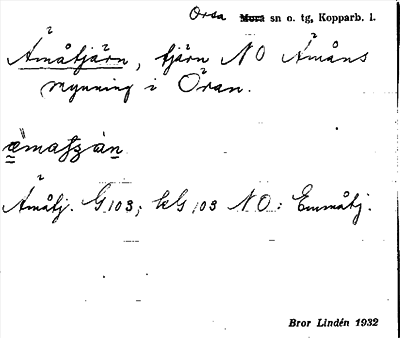 Orsa Mora sn o. tg, Kopparb. l.
Åmåtjärn, tjärn NO Åmåns
mynning i Oran.
Åmåtj. G 103; kG 103 NO: Emmåtj.
Bror Lindén 1932